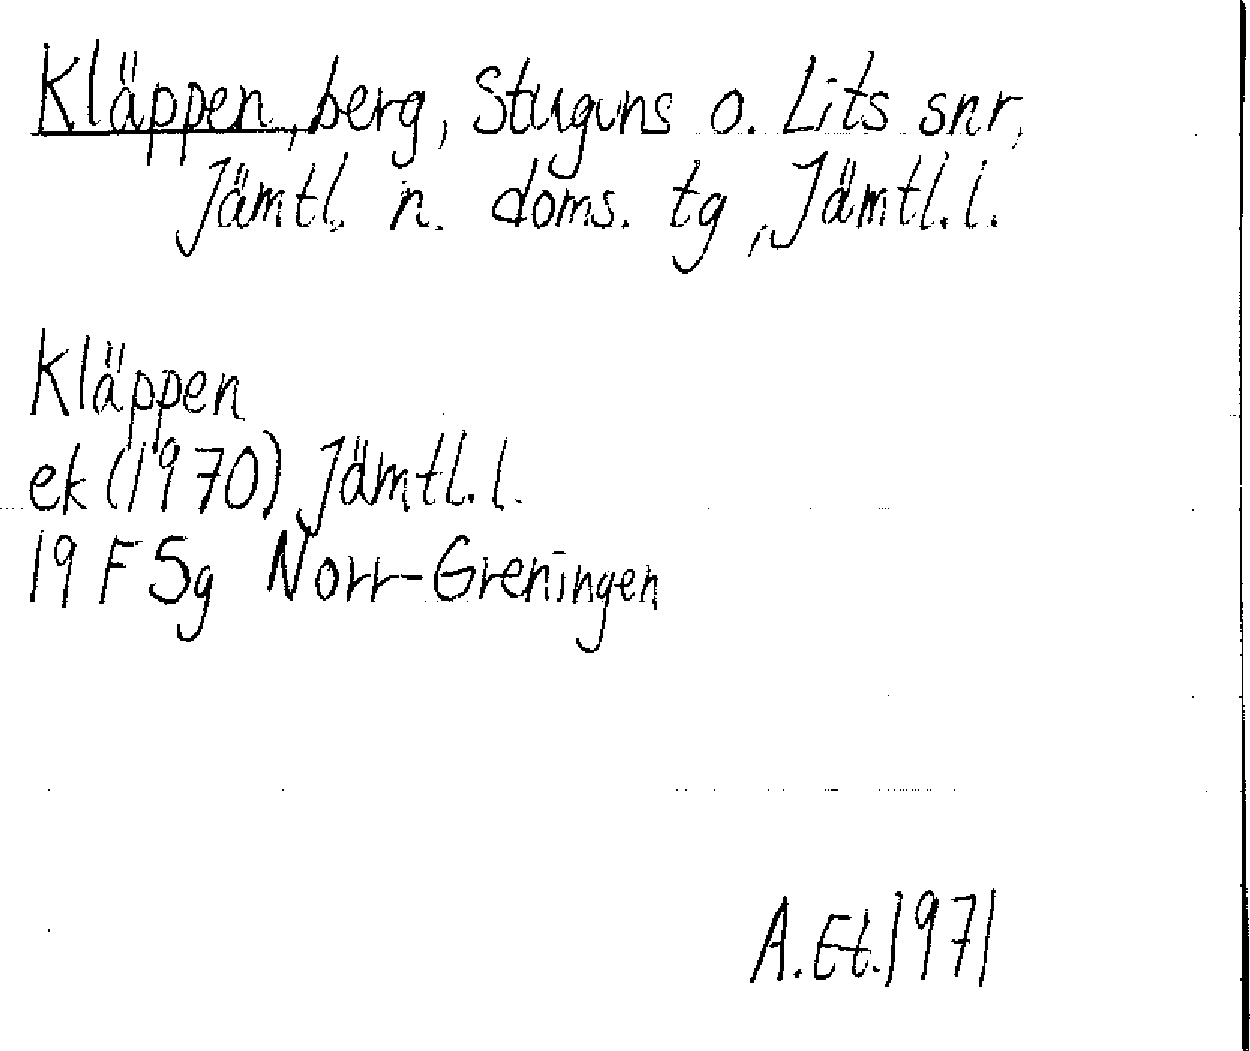 Kläppen, berg, Stuguns o. Lits snr,
Jämtl. n. doms. tg, Jämtl. l.
Kläppen
ek (1970) Jämtl. l.
19 F 5g Norr-Greningen
A. Et. 1971